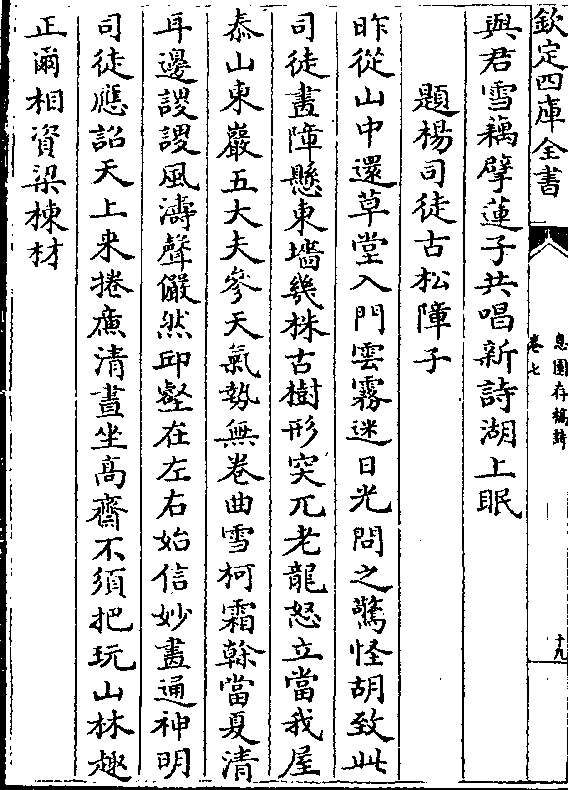 欽定四庫全書
息園存稿詩
卷七
十九
與君雪藕擘蓮子共唱新詩湖上眠
題楊司徒古松障子
昨從山中還草堂入門雲霧迷日光問之驚怪胡致此
司徒畫障懸東墻幾株古樹形突兀老龍怒立當我屋
泰山東巖五大夫參天氣勢無卷曲雪柯霜榦當夏清
耳邊謖謖風濤聲儼然邱壑在左右始信妙畫通神明
司徒應詔天上來捲㢘清晝坐高齋不須把玩山林趣
正爾相資梁棟材